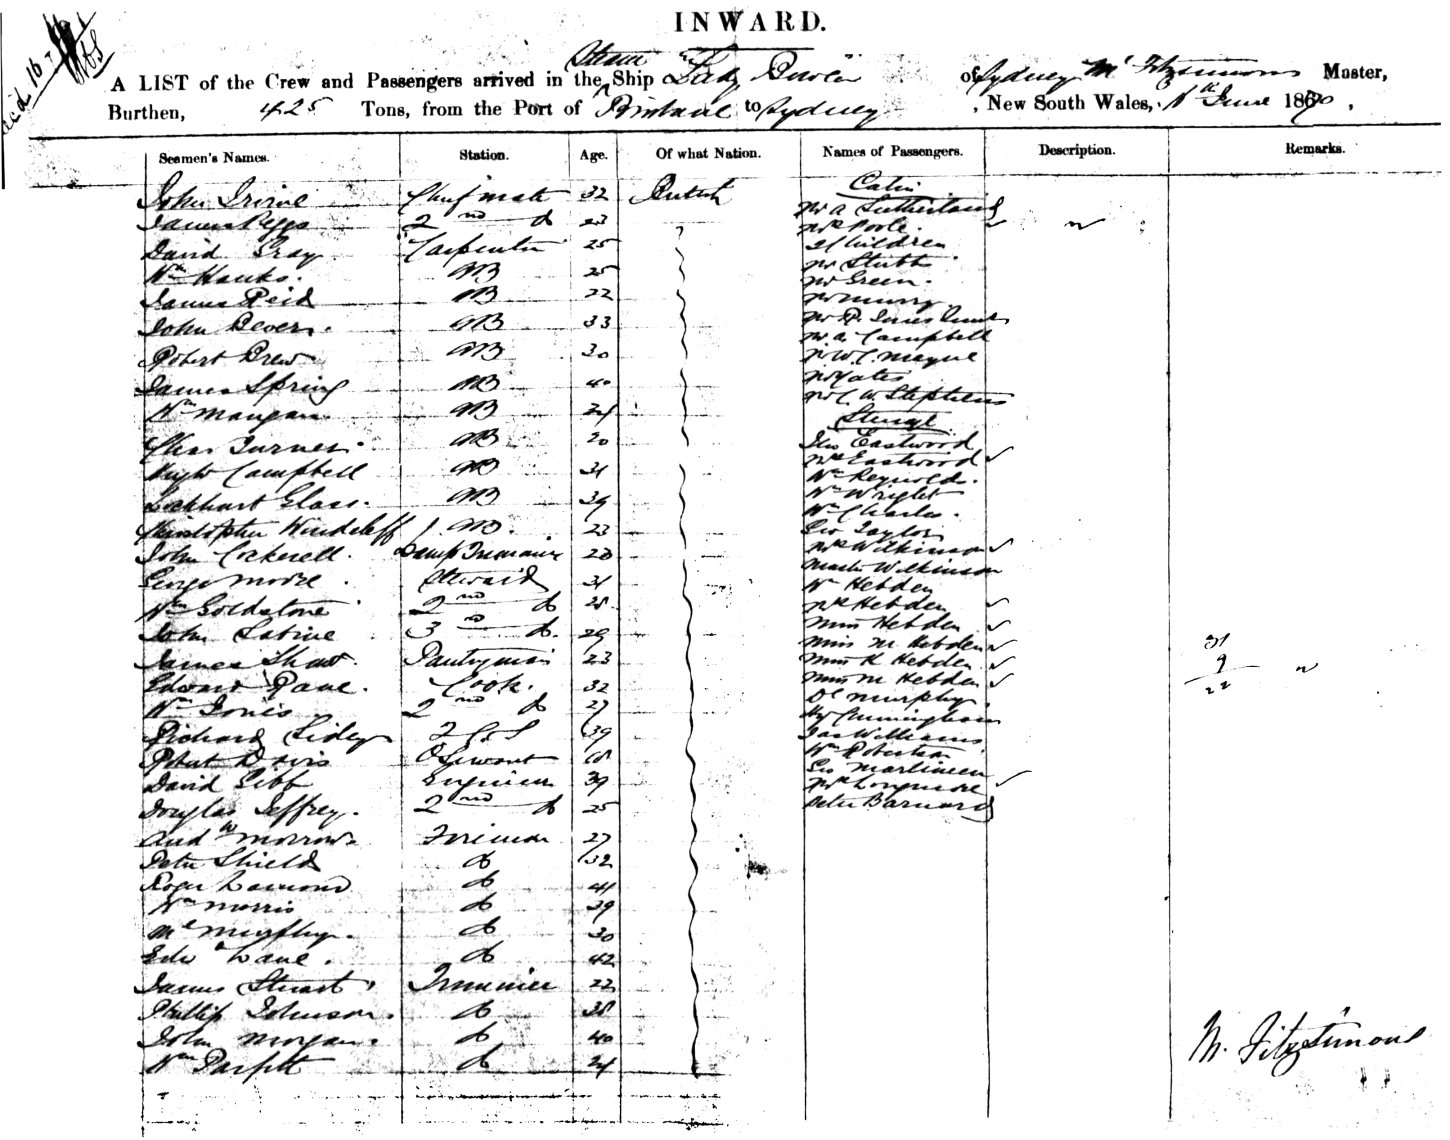 INWARD.
A LIST of the Crew and Passengers arrived in the Steam Ship Lady Bowen of Sydney Mc Fitzsimons Master,
Burthen, 425 Tons, from the Port of Brisbane to Sydney, New South Wales, 1st June 1870.
Seamen's Names. Station. Age. Of what Nation. Names of Passengers. Description. Remarks.
John Irvine Chief mate 32 British Cabin
James 2nd do 23 Mr A Sutherland
David Gray Carpenter 25 Mrs Poole
Wm Hanks AB 25 2 Children
James Reid AB 22 Mr Stubbs
John Bevers AB 33 Mr Green
Robert Brew AB 30 Mr Murry
James Spring AB 40 Mr R. Innes
Wm Mangan AB 24 Mr A. Campbell
Chas Turner AB 20 Mr W C. Mayne
Hugh Campbell AB 31 Mr Yates
Lockhart Glass AB 39 Mr C. W. Stephens
Christopher AB 23 Steerage
John Cockerell Lamp Trimmer 20 Geo Eastwood
George Moore Steward 31 Mrs Eastwood
Wm Goldstone 2nd do 28 Wm Reynolds
John Sabine 3rd do 29 Wm Wright
James Shaw Pantryman 23 Wm Charles
Edward Pane Cook 32 Geo Taylor
Wm Jones 2nd do 27 Mrs Wilkinson
Richard Sidey 39 Master Wilkinson
Robert Davis 18 Wm Hebden
David Gibb Engineer 39 Mrs Hebden
Douglas Jeffrey 2nd do 25 Miss Hebden
Andw Morrow Fireman 27 Miss M Hebden
Peter Shield do 32 Miss K Hebden
Roger Lamond do 41 Miss M Hebden
Wm Morris do 39 Dl Murphy
Ml Murphy do 30 Hy Cunningham
Edwd Lane do 42 Jas Williams
James Stuart Trimmer 22 Wm Robertson
Phillip Johnson do 38 Geo Martineer
John Morgan do 40 Mrs Longmore
Wm Parfitt do 24 Peter Barnard
31
9
22
M. Fitzsimons